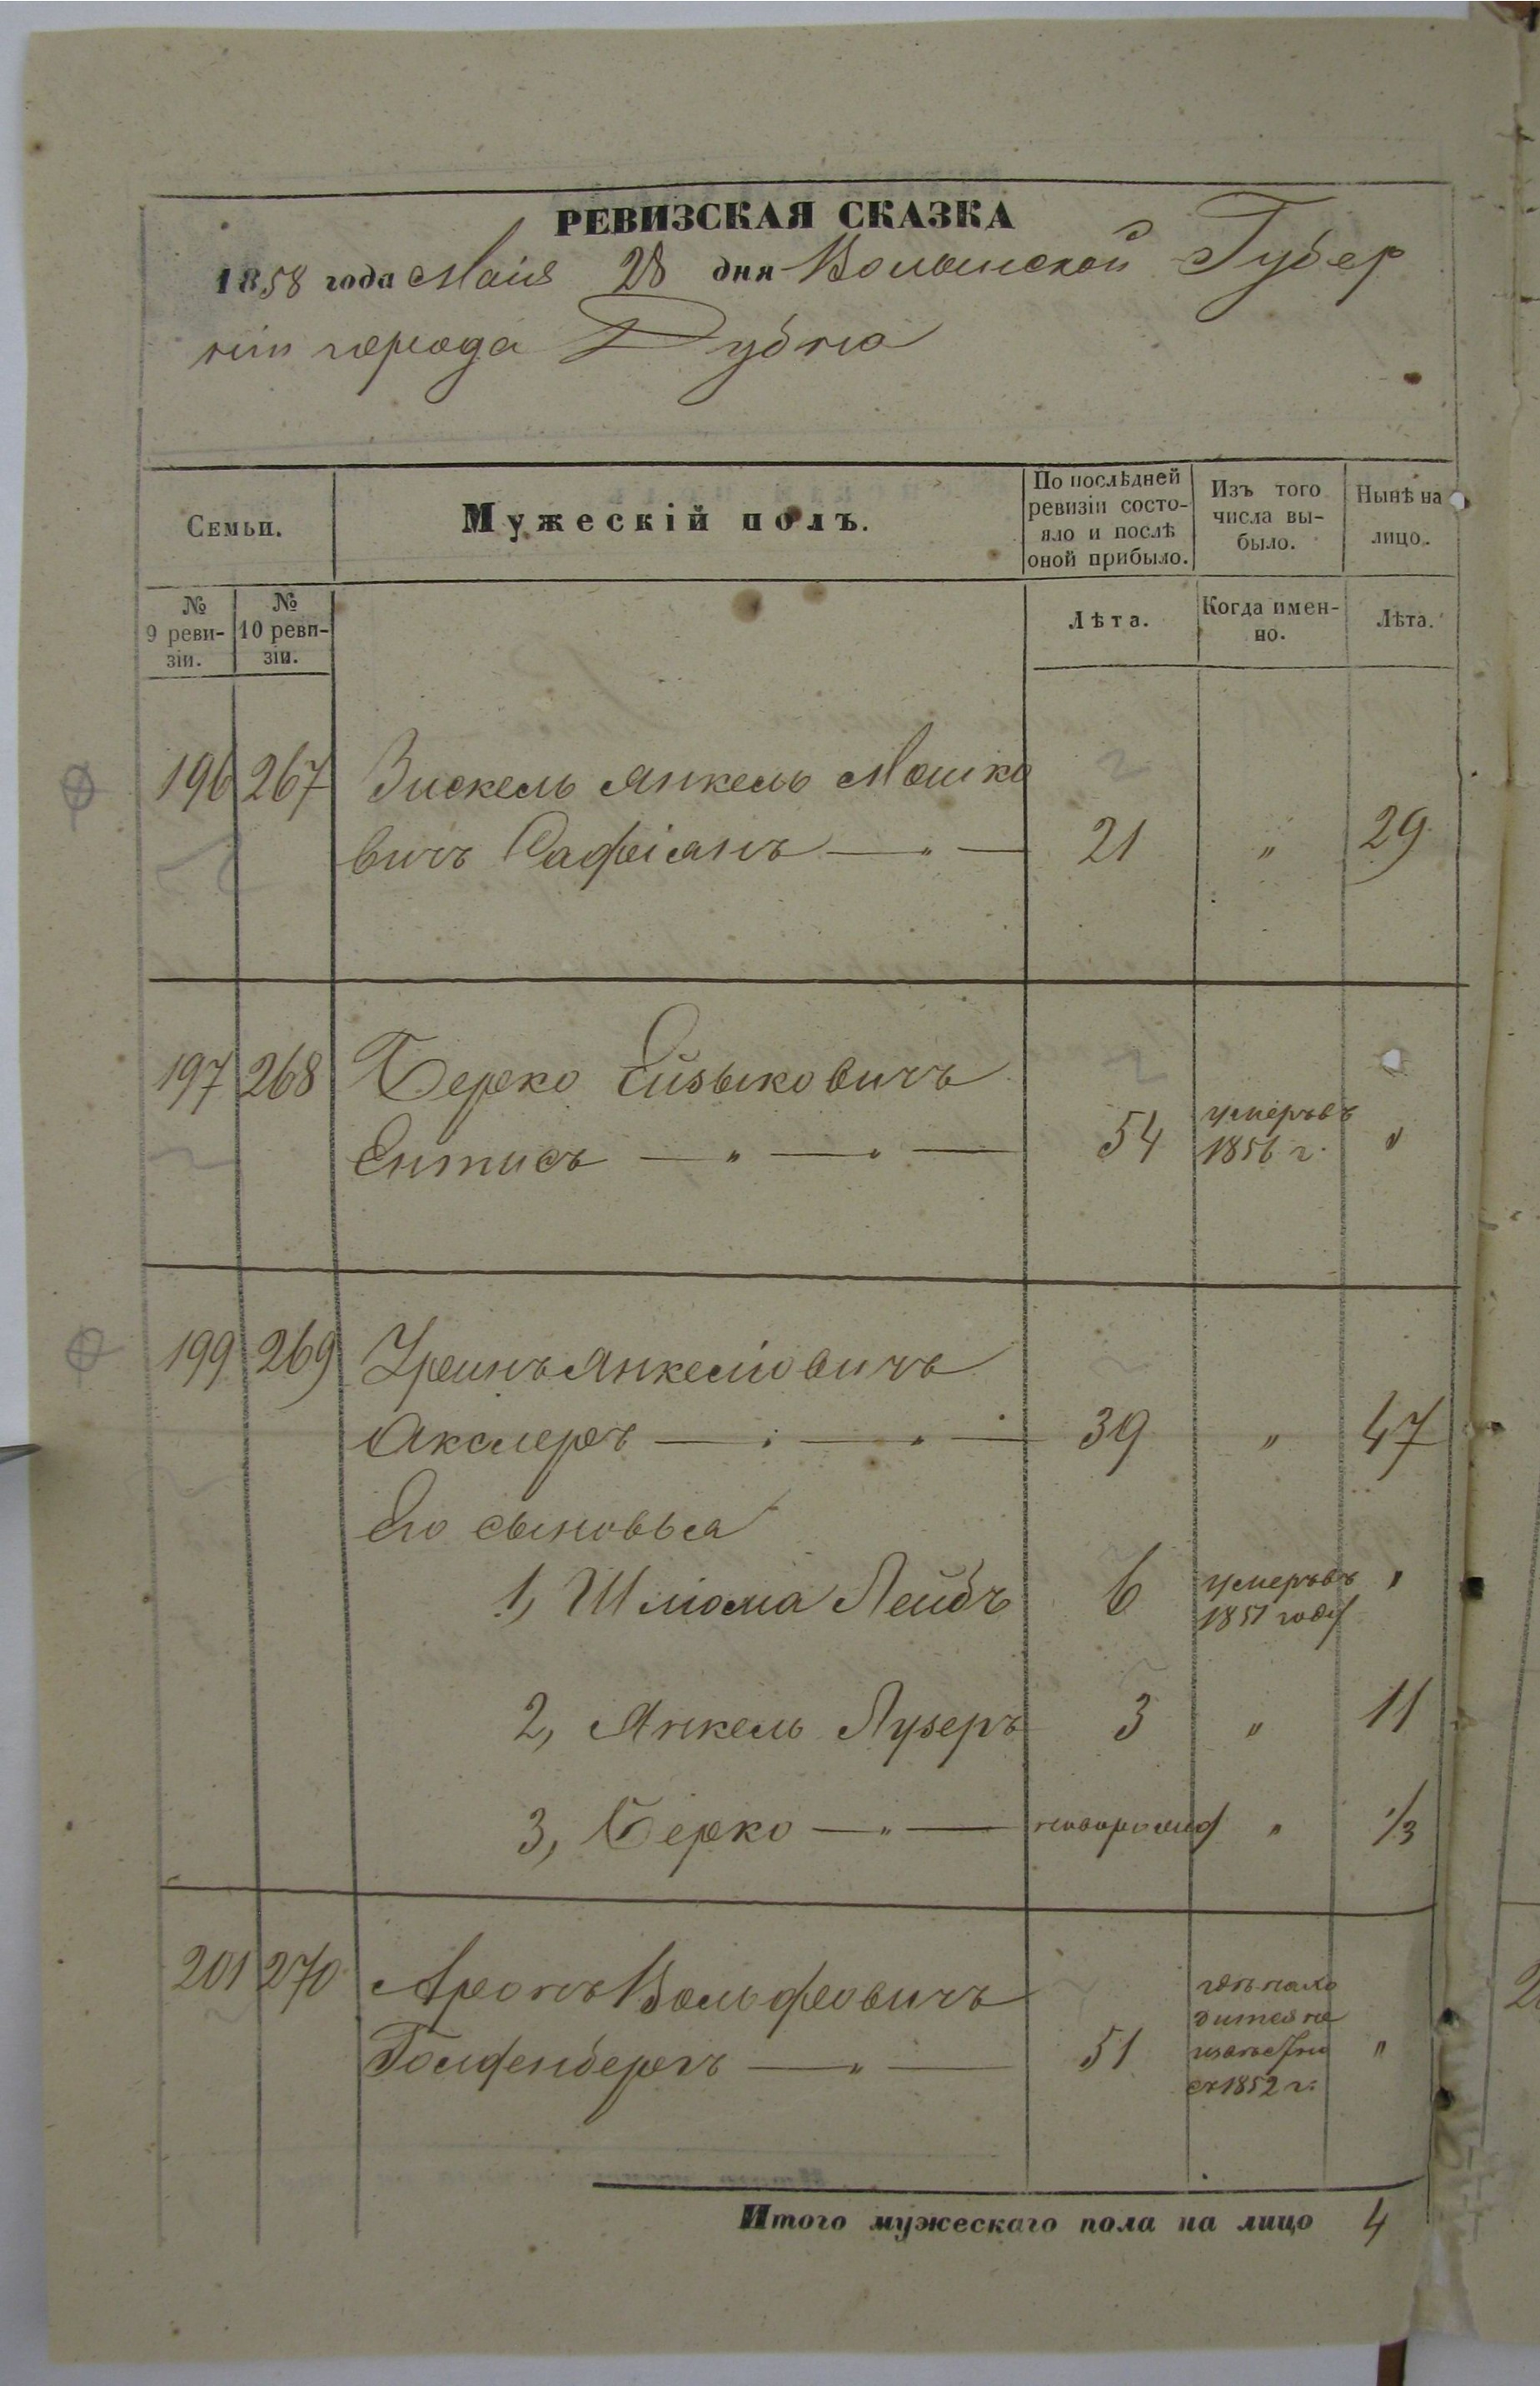 РЕВИЗСКАЯ СКАЗКА
1858 года Маія 28 дня Волынской Губер
ніи города Дубна
Семьи.
Мужескій полъ.
По послѣдней ревизіи состояло и послѣ оной прибыло.
Изъ того числа вы-было.
Нынѣ на лицо.
№ 9 реви-зіи.
№ 10 реви-зіи.
Лѣта.
Когда имен-но.
Лѣта.
196 267 Зискель Янкель Мошко
вичъ Сафіанъ — " — 21 " 29
197 268 Берко Ейзыковичъ
Ентисъ — " — " — 54 умеръ въ 1856 г. "
199 269 Янкеліовичъ
Акслеръ — " — " — 39 " 47
Его сыновья
1, Шліома Лейбъ 6 умеръ въ 1851 году "
2, Янкель Лузеръ 3 " 11
3, Берко — " — новорожд " 1/3
201 270 Аронъ Вольфовичъ
Голденбергъ — " — 51 гдѣ нахо дится не извѣстно съ 1852 г. "
Итого мужескаго пола на лицо 4